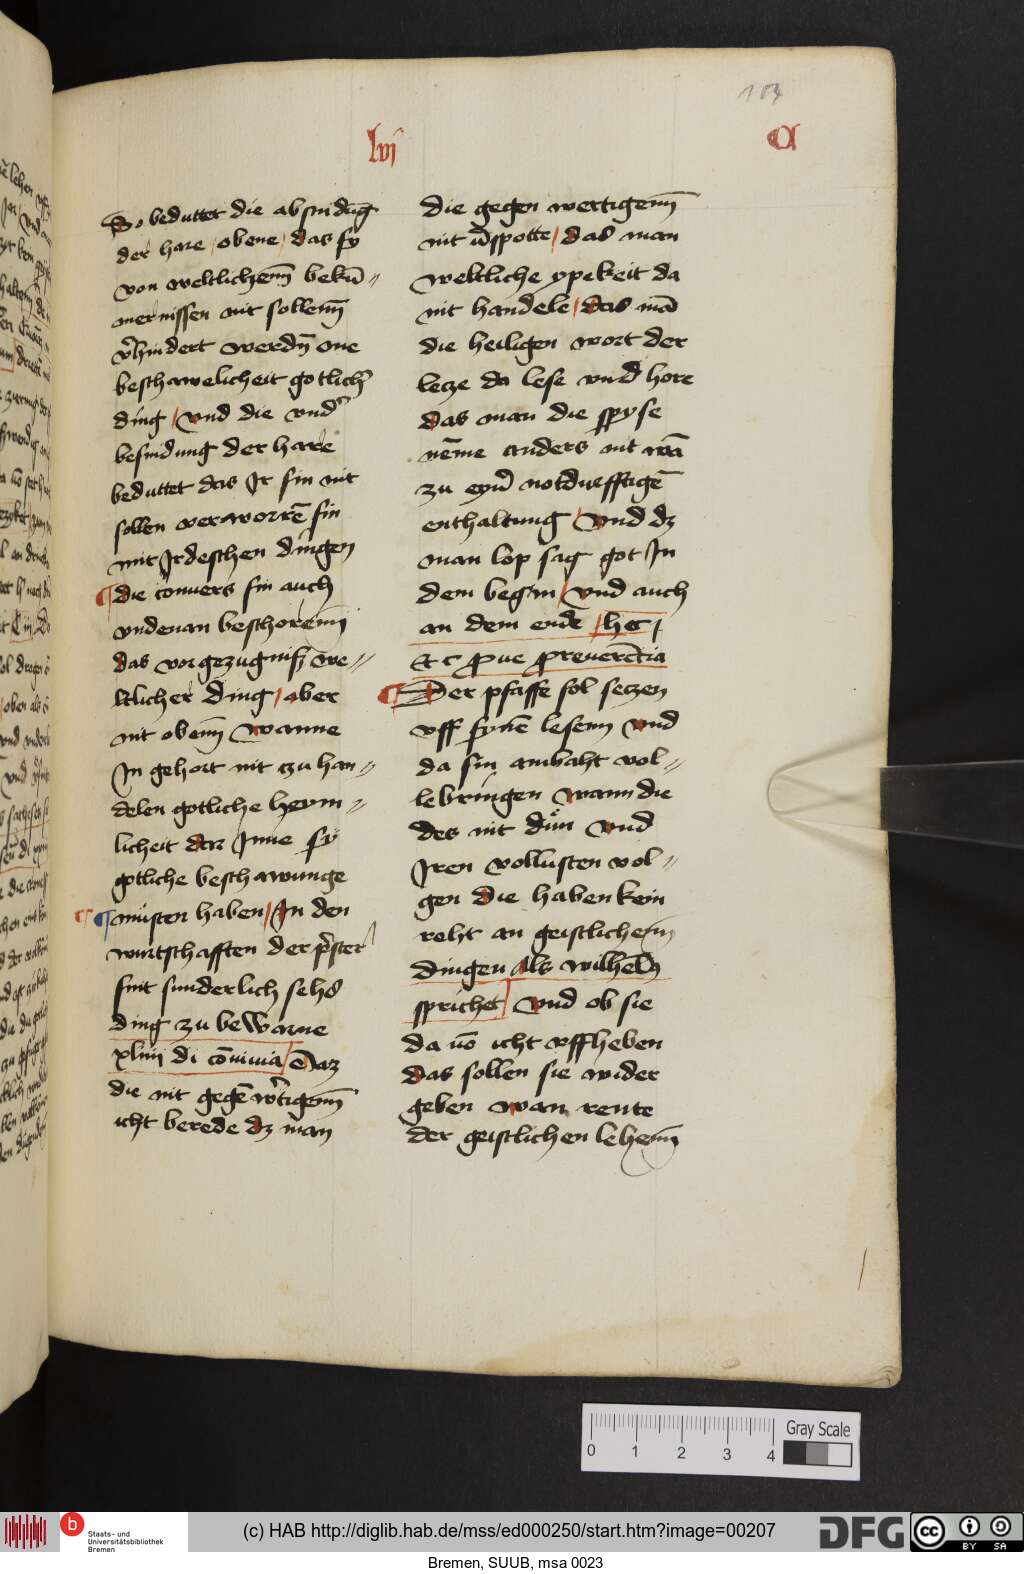 104
lvj
A
So beduttet die absnidūg
der hare / obene / das sy
von weltlichem̄ bekū〃
mernissen nit sollem̄
v̉hindert werdn̄ one
beschawelicheit gotlich̉
ding / vnd die vnd̉
besnidung der hare
beduttet das Ir sin nit
sollen verworrē sin
mit Irdeschen dingen
¶ die convers sin auch
vndenan beschorem̄
das vorgezugniß we〃
ltlicher ding / aber
nit obem̄ wanne
In gehort nit zu han〃
delen gotliche heym〃
licheit dar Inne sy
gotliche beschawunge
¶ müsten haben / In den
wurtschafften der p̉ster
sint sunderlich sehs
ding zu beWarne
xliiij di cōuiuia / Daz
die nit gegē w̉tigem̄
icht berede dz man
die gegen wertigem̄
nit v̉spotte / das man
weltliche ypekeit da
nit handele / das mā
die heiligen wort der
letze da lese vnd hore
das man die spyse
nēme anders nit wā
zu eyn̉ notduefftigē
enthaltung / vnd dz
man lop sag got In
dem begin / vnd auch
an dem ende / hec /
Et c ꝓue ꝓreuerētia
¶ Der pfaffe sol setzen
vff synē lesem vnd
da sin ambaht vol〃
lebringen wann die
des nit dün vnd
Iren vollusten vol〃
gen die haben kein
reht an geistlichem̄
dingen Als wilhelm̄
sprichet / vnd ob sie
da vō icht vffheben
das sollen sie wider
geben wan rente
der geistlichen lehem̄
0 1 2 3 4
Gray Scale
b
Staats- und
Universitätsbibliothek
Bremen
(c) HAB http://diglib.hab.de/mss/ed000250/start.htm?image=00207
DFG
cc BY SA
Bremen, SUUB, msa 0023